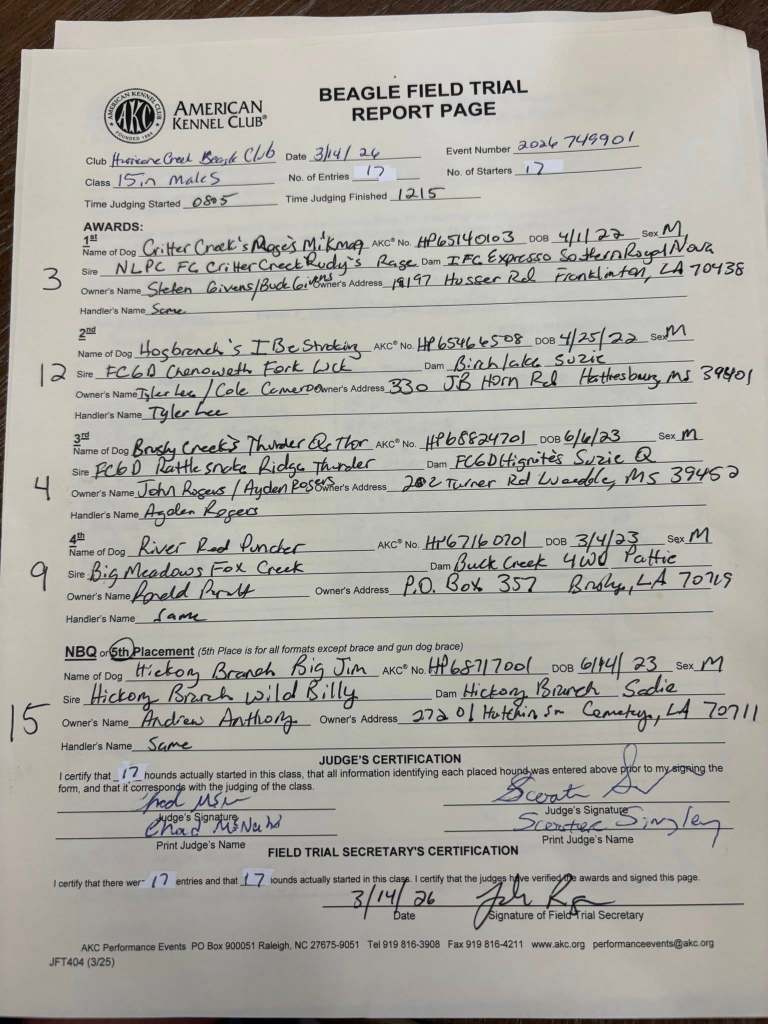 AMERICAN KENNEL CLUB
AKC
FOUNDED 1884
AMERICAN
KENNEL CLUB®
BEAGLE FIELD TRIAL
REPORT PAGE
Club Hurricane Creek Beagle Club Date 3/14/26 Event Number 2026749901
Class 15in Males No. of Entries 17 No. of Starters 17
Time Judging Started 0805 Time Judging Finished 1215
AWARDS:
1st
Name of Dog Critter Creek's Mikmaq AKC® No. HP65140103 DOB 4/1/22 Sex M
3 Sire NLPC FC Critter Creek Rudy's Rage Dam IFC Expresso Southern Royal Nova
Owner's Name Givens/Buck Givens Owner's Address Husser Rd Franklinton, LA 70438
Handler's Name Same
2nd
Name of Dog Hogbranch's I Be Stroking AKC® No. HP65466508 DOB 4/25/22 Sex M
12 Sire FCGD Chenoweth Fork Dam Birchlake Suzie
Owner's Name Tyler Lee / Cole Owner's Address 330 JB Horn Rd Hattiesburg, MS 39401
Handler's Name Tyler Lee
3rd
Name of Dog Brushy Creek's Thunder Thor AKC® No. HP68824701 DOB 6/6/23 Sex M
4 Sire FCGD Rattlesnake Ridge Thunder Dam FCGD Hignite's Suzie Q
Owner's Name John Rogers / Ayden Rogers Owner's Address 202 Turner Rd MS 39452
Handler's Name Ayden Rogers
4th
Name of Dog River Red Puncher AKC® No. HP67160701 DOB 3/4/23 Sex M
9 Sire Big Meadows Fox Creek Dam Buck Creek 4WD Pattie
Owner's Name Ronald Owner's Address P.O. Box 357 LA
Handler's Name Same
NBQ or 5th Placement (5th Place is for all formats except brace and gun dog brace)
Name of Dog Hickory Branch Big Jim AKC® No. HP68717001 DOB 6/14/23 Sex M
15 Sire Hickory Branch Wild Billy Dam Hickory Branch Sadie
Owner's Name Andrew Anthony Owner's Address 27201 Cemetery, LA 70711
Handler's Name Same
JUDGE'S CERTIFICATION
I certify that 17 hounds actually started in this class, that all information identifying each placed hound was entered above prior to my signing the
form, and that it corresponds with the judging of the class.
Judge's Signature Judge's Signature
Chad McNabb Scooter Singley
Print Judge's Name Print Judge's Name
FIELD TRIAL SECRETARY'S CERTIFICATION
I certify that there wer 17 entries and that 17 ounds actually started in this class. I certify that the judges have verified the awards and signed this page.
3/14/26
Date Signature of Field Trial Secretary
AKC Performance Events PO Box 900051 Raleigh, NC 27675-9051 Tel 919 816-3908 Fax 919 816-4211 www.akc.org performanceevents@akc.org
JFT404 (3/25)